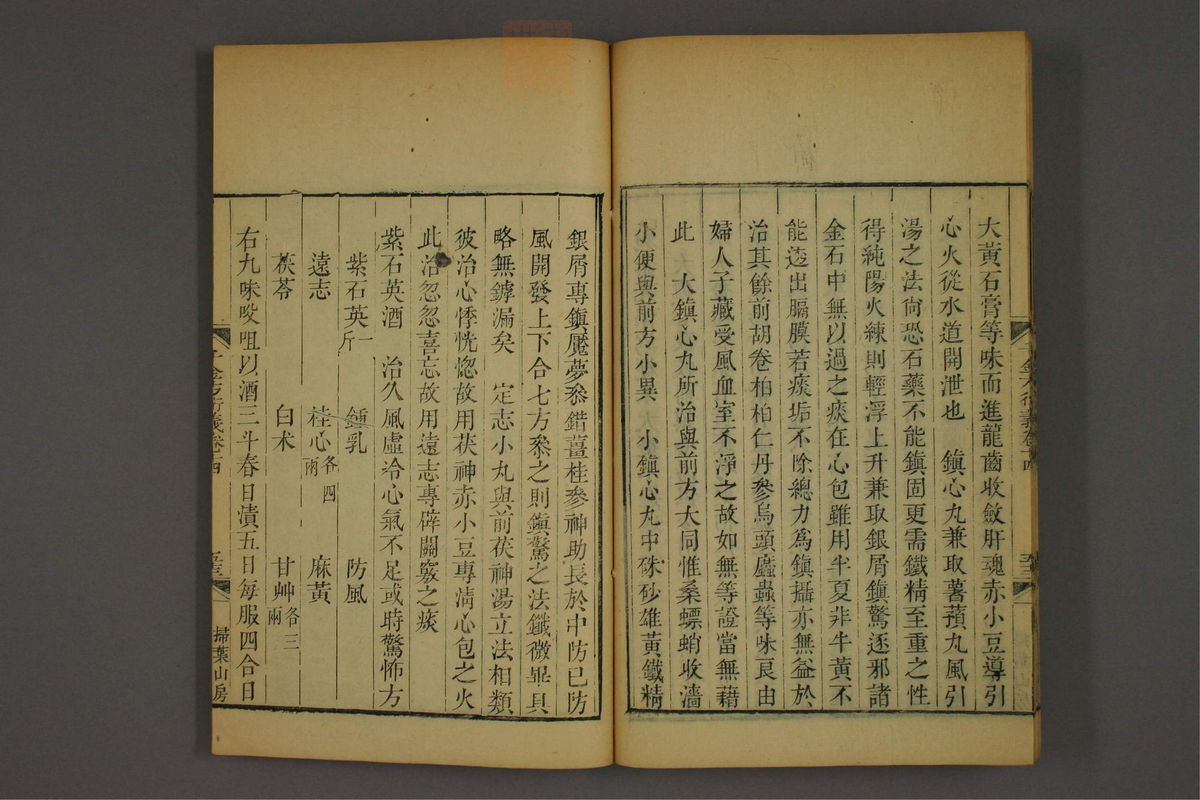 大黃石膏等味而進龍齒收斂肝魂赤小豆導引
心火從水道開泄也　鎮心丸兼取薯蕷丸風引
湯之法尙恐石藥不能鎮固更需鐵精至重之性
得純陽火練則輕浮上升兼取銀屑鎮驚逐邪諸
金石中無以過之痰在心包雖用半夏非牛黃不
能透出膈膜若痰垢不除總力爲鎮攝亦無益於
治其餘前胡卷柏柏仁丹參烏頭䗪蟲等味良由
婦人子藏受風血室不淨之故如無等證當無藉
此　大鎮心丸所治與前方大同惟桑螵蛸收濇
小便與前方小異　小鎮心丸中硃砂雄黃鐵精
銀屑專鎮魘夢叅錯薑桂參神助長於中防已防
風開發上下合七方叅之則鎮驚之法鐵微畢具
略無罅漏矣　定志小丸與前茯神湯立法相類
彼治心悸恍惚故用茯神赤小豆專清心包之火
此治忽忽喜忘故用遠志專辟關竅之痰
紫石英酒　治久風虛冷心氣不足或時驚怖方
紫石英一斤　鍾乳　防風
遠志　桂心各四兩　麻黃
茯苓　白术　甘艸各三兩
右九味㕮咀以酒三斗春日漬五日每服四合日
千金方衍義卷十四
掃葉山房